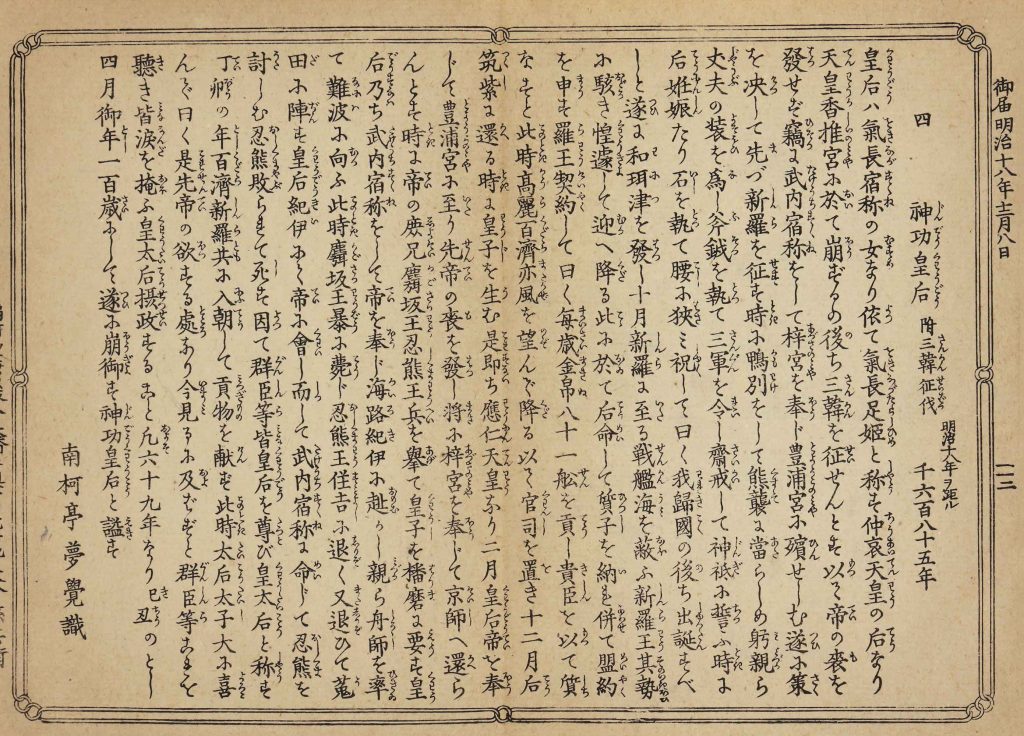 御届明治十八年十二月八日
一二三
四 神功皇后 附三韓征伐 明治十八年ヲ距ル 千六百八十五年
皇后ハ氣長宿称の女なり依て氣長足姫と称も仲哀天皇の后なり
天皇香推宮に於て崩ずるの後ち三韓を征せんとも以て帝の喪を
發せず竊に武内宿称をして梓宮を奉じ豊浦宮に殯せしむ遂に策
を决して先づ新羅を征も時に鴨別をして熊襲に當らしめ躬親ら
丈夫の装を爲し斧鉞を執て三軍を令し齋戒して神祇に誓ふ時に
后姙娠たり石を執て腰に狹み祝して曰く我歸國の後ち出誕すべ
しと遂に和珥津を發し十月新羅に至る戦艦海を蔽ふ新羅王其勢
に駭き惶遽して迎へ降る此に於て后命して質子を納も併て盟約
を申も羅王契約して曰く毎歳金帛八十一舩を貢し貴臣を以て質
なすと此時髙麗百濟亦風を望んで降る以て官司を置き十二月后
筑紫に還る時に皇子を生む是即ち應仁天皇なり二月皇后帝を奉
じて豊浦宮に至り先帝の喪を發し將に梓宮を奉じて京師へ還ら
んとも時に帝の庶兄麛坂王忍熊王兵を舉て皇子を播磨に要も皇
后乃ち武内宿称をして帝を奉じ海路紀伊に赴かし親ら舟師を率
て難波に向ふ此時麛坂王暴に薨ず忍熊王住吉に退く又退ひて菟
田に陣も皇后紀伊にて帝に會し而して武内宿称に命して忍熊を
討しむ忍熊敗られて死も因て群臣等皆皇后を尊び皇太后と称も
丁卯の年百濟新羅共に入朝して貢物を献も此時太后太子大に喜
んで曰く是先帝の欲する處なり今見るに及ばずと群臣等これを
聽き皆淚を掩ふ皇太后摂政すること凡六十九年なり己丑のとし
四月御年一百歳にして遂に崩御も神功皇后と謚も
南柯亭夢覺識